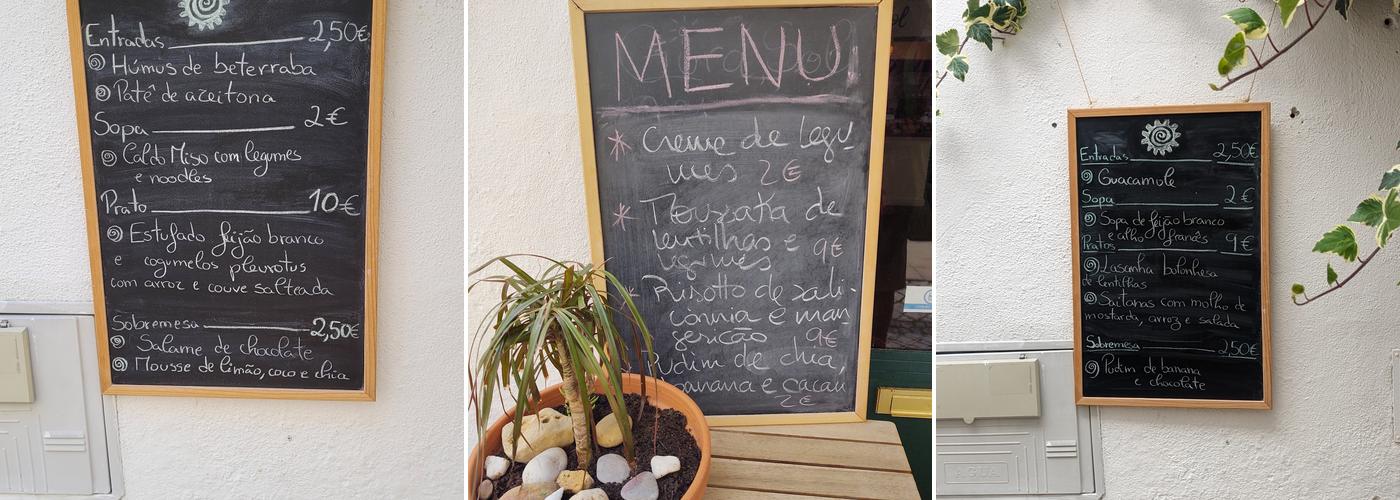 Entradas 2,50€
Húmus de beterraba
Patê de azeitona
Sopa 2€
Caldo Miso com legumes
e noodles
Prato 10€
Estufado feijão branco
e cogumelos pleurotus
com arroz e couve salteada
Sobremesa 2,50€
Salame de chocolate
Mousse de limão, coco e chia
MENU
* Creme de legu
mes 2€
* Moussaka de
lentilhas e 9€
legumes
Risotto de sali-
córnia e man
jericão 9€
Pudim de chia,
banana e cacau
2€
Entradas 2,50€
Guacamole
Sopa 2€
Sopa de feijão branco
e alho francês
Pratos 9€
Lasanha bolonhesa
de lentilhas
Saitanas com molho de
mostarda, arroz e salada
Sobremesa 2,50€
Pudim de banana
e chocolate
AGUA